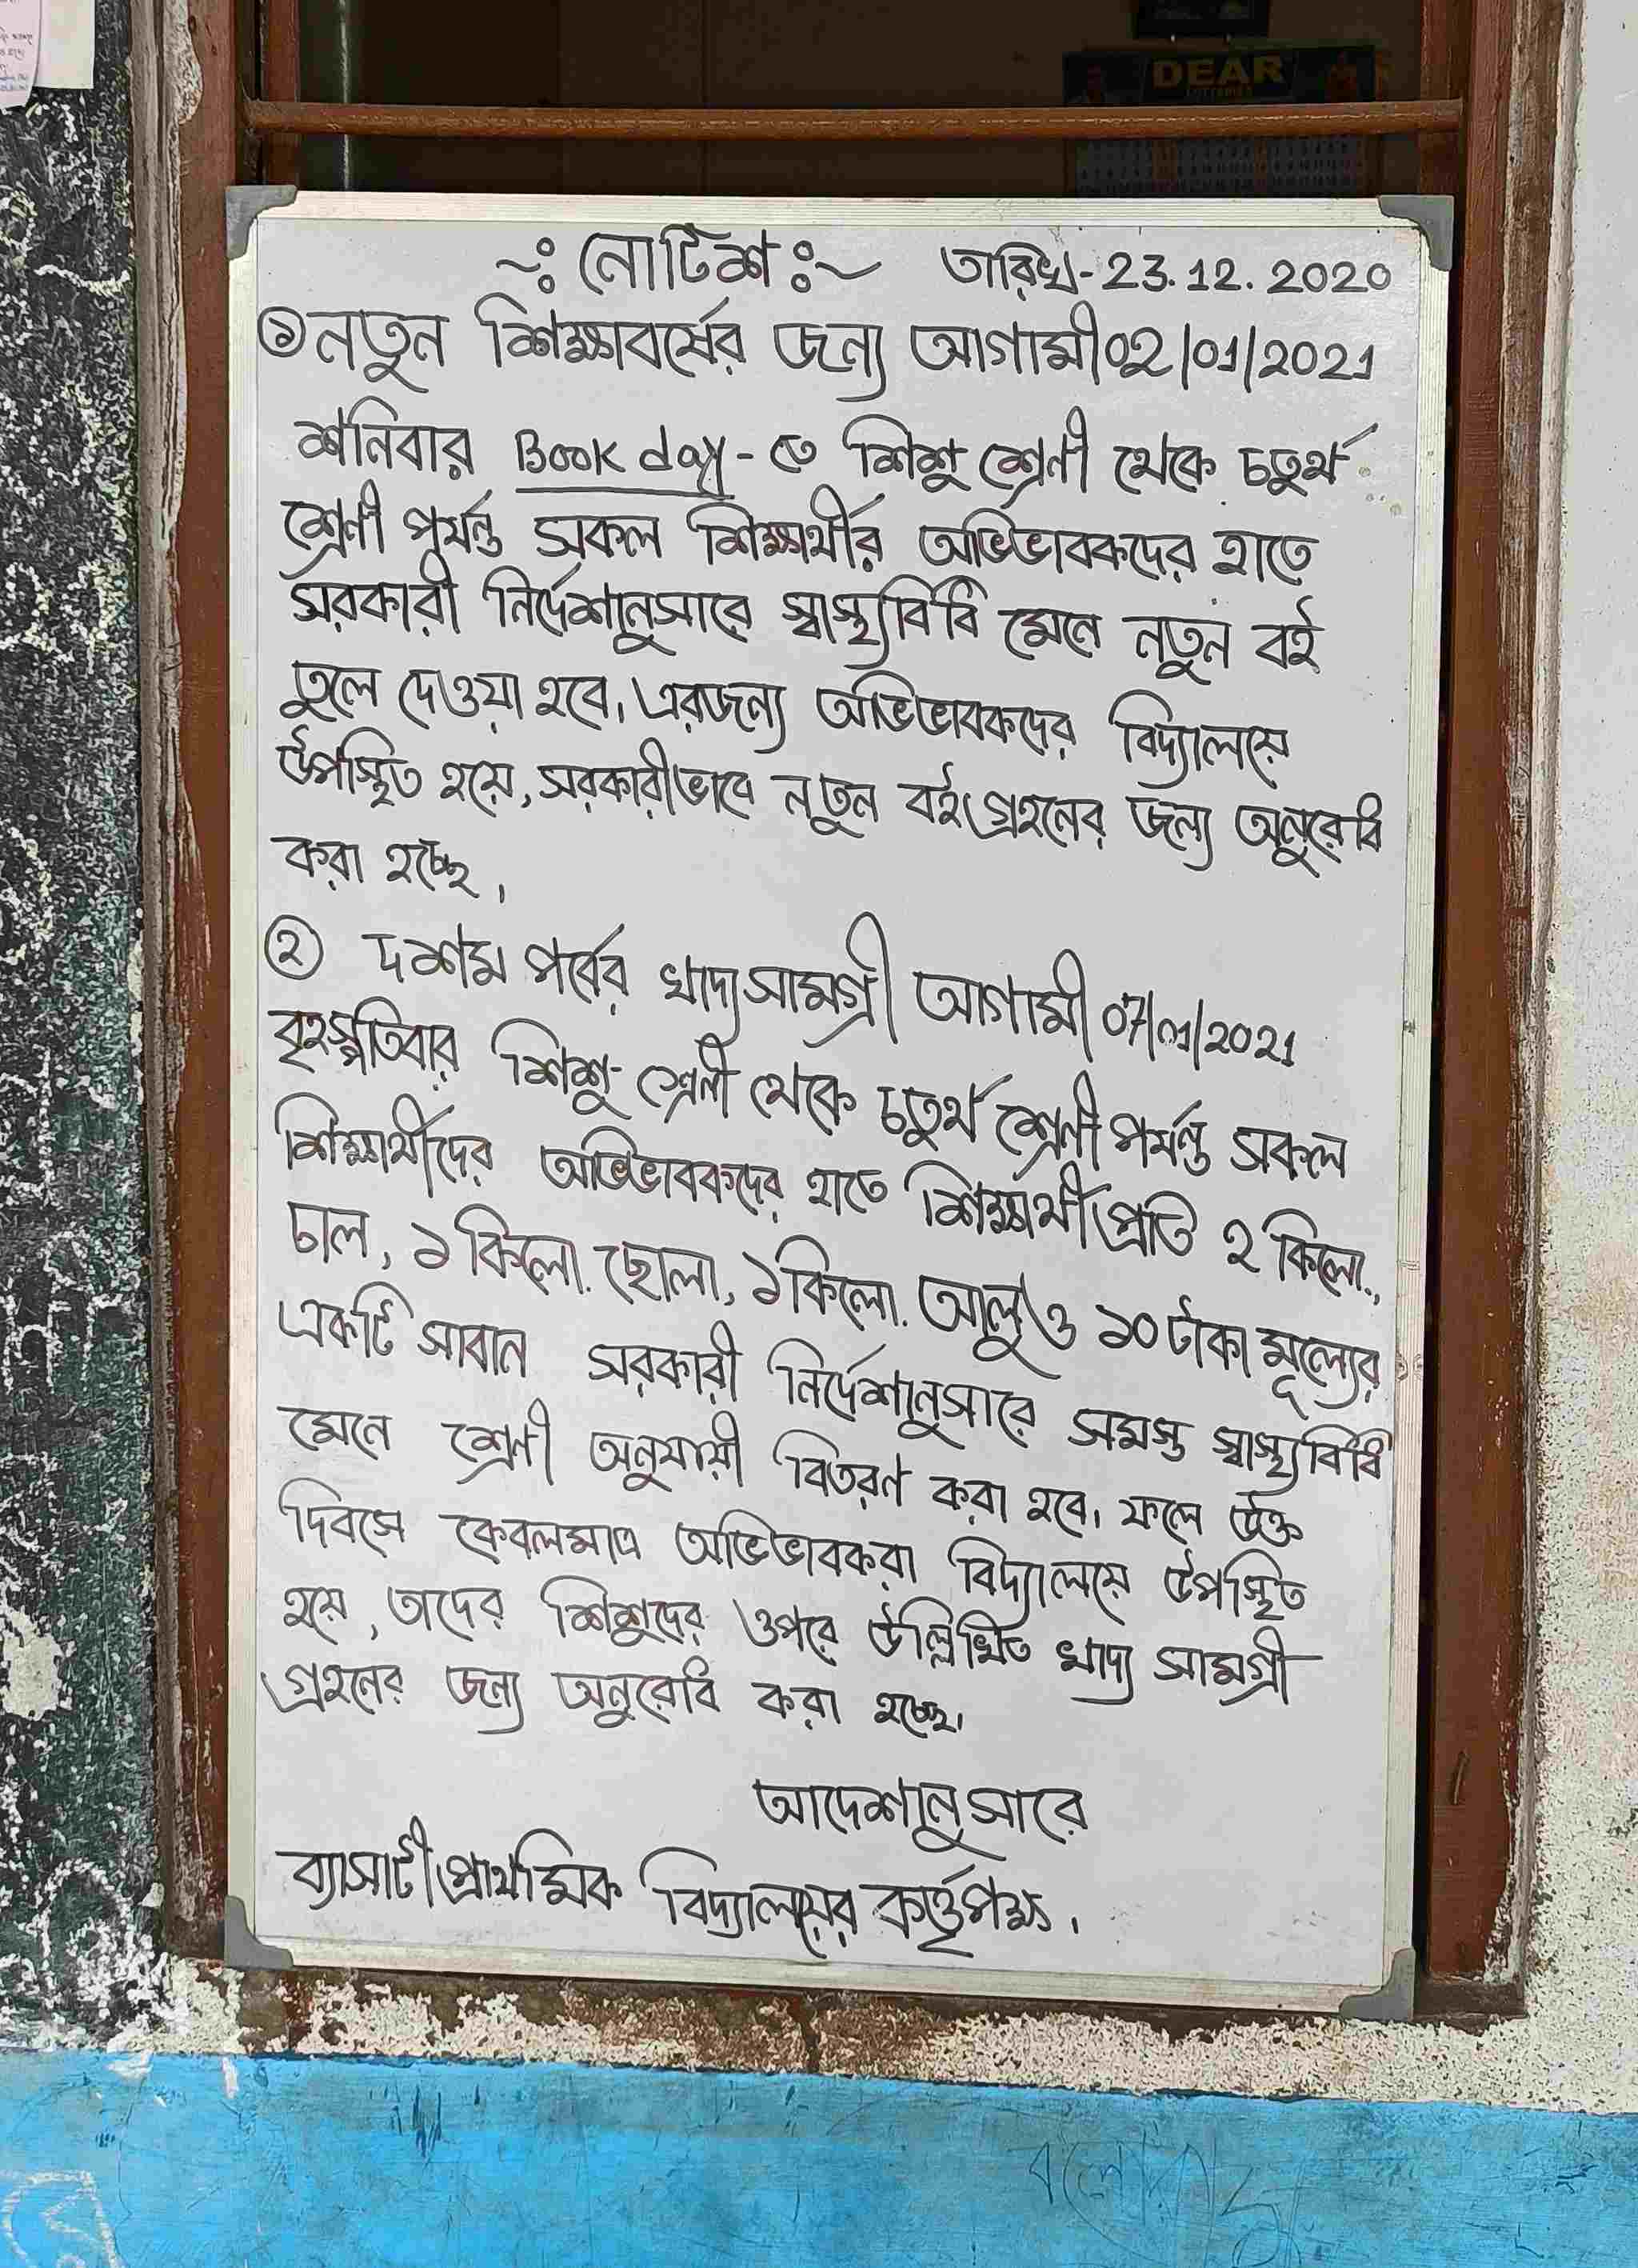 DEAR
LOTTERIES
~ঃ নোটিশ ঃ~ তারিখ-23.12.2020
① নতুন শিক্ষাবর্ষের জন্য আগামী 02/01/2021
শনিবার Book day-তে শিশু শ্রেণী থেকে চতুর্থ
শ্রেণী পর্যন্ত সকল শিক্ষার্থীর অভিভাবকদের হাতে
সরকারী নির্দেশানুসারে স্বাস্থ্যবিধি মেনে নতুন বই
তুলে দেওয়া হবে। এরজন্য অভিভাবকদের বিদ্যালয়ে
উপস্থিত হয়ে, সরকারীভাবে নতুন বই গ্রহনের জন্য অনুরোধ
করা হচ্ছে।
② দশম পর্বের খাদ্যসামগ্রী আগামী 07/01/2021
বৃহস্পতিবার শিশু-শ্রেণী থেকে চতুর্থ শ্রেণী পর্যন্ত সকল
শিক্ষার্থীদের অভিভাবকদের হাতে শিক্ষার্থী প্রতি ২ কিলো.
চাল, ১ কিলো. ছোলা, ১কিলো. আলু ও ১০ টাকা মূল্যের
একটি সাবান সরকারী নির্দেশানুসারে সমস্ত স্বাস্থ্যবিধি
মেনে শ্রেণী অনুযায়ী বিতরণ করা হবে। ফলে উক্ত
দিবসে কেবলমাত্র অভিভাবকরা বিদ্যালয়ে উপস্থিত
হয়ে, তাদের শিশুদের ওপরে উল্লিখিত খাদ্য সামগ্রী
গ্রহনের জন্য অনুরোধ করা হচ্ছে।
আদেশানুসারে
ব্যাসাটী প্রাথমিক বিদ্যালয়ের কর্ত্তৃপক্ষ।